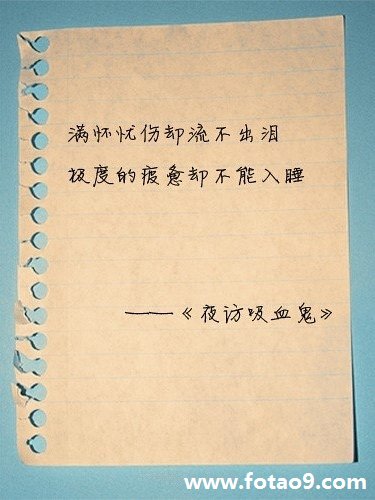 满怀忧伤却流不出泪
极度的疲惫却不能入睡
——《夜访吸血鬼》
www.fotao9.com